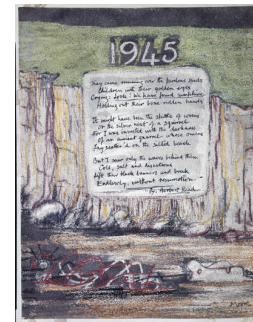 1945
They came running over the perilous sands
Children with their golden eyes
Crying: Look! We have found samphire
Holding out their bone ridden hands
It might have been the spittle of wrens
Or the silver nest of a squirrel
For I was invested with the darkness
Of an ancient quarrel whose omens
Lay scatter'd on the silted beach
But I saw only the waves behind them
Cold, salt and disastrous
Lift their black banners and break
Endlessly, without resurrection
Herbert Read